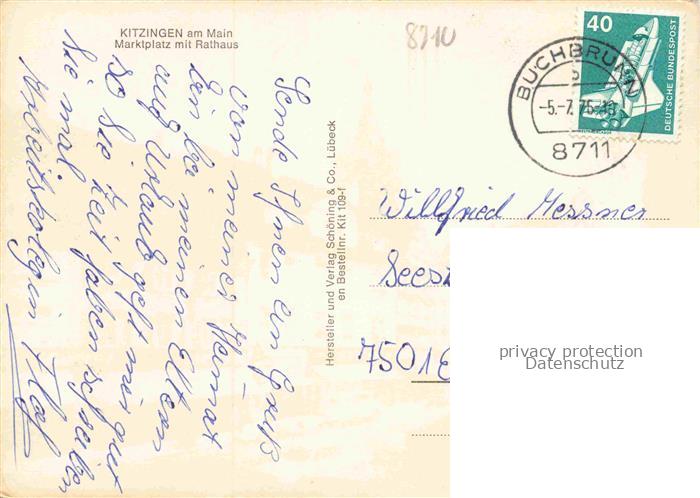 KITZINGEN am Main
Marktplatz mit Rathaus
8710
Sende Ihnen ein Gruß
von meiner Heimat
bin bei meinen Eltern
auf Urlaub geht mir gut
so Sie Zeit haben schreiben
Sie mal
Arbeitskolegin
Hersteller und Verlag Schöning & Co., Lübeck
en Bestellnr. Kit 109-f
40
DEUTSCHE BUNDESPOST
BUCHBRUNN
b
-5.-7.75-18
8711
Willfried Messner
Sees
7501
privacy protection
Datenschutz